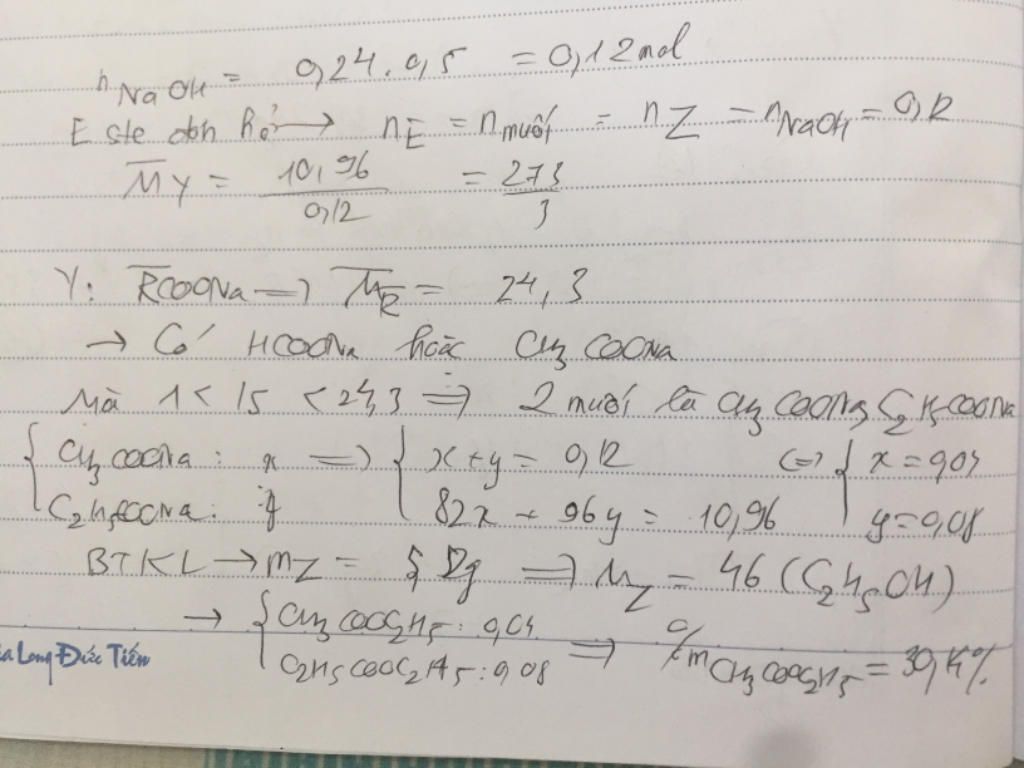 nNaOH = 0,24.0,5 = 0,12 mol
Este đơn hở → nE = nmuối = nZ = nNaOH = 0,12
M̅Y = 10,96/0,12 = 273/3
Y: R̅COONa => M̅R̅ = 24,3
→ Có HCOONa hoặc CH3COONa
Mà 1 < 15 < 24,3 => 2 muối là CH3COONa, C2H5COONa
{ CH3COONa: x => { x + y = 0,12 <=> { x = 0,04
C2H5COONa: y 82x + 96y = 10,96 y = 0,08
BTKL → mZ = 5,52g => MZ = 46 (C2H5OH)
→ { CH3COOC2H5: 0,04
C2H5COOC2H5: 0,08 => %mCH3COOC2H5 = 30,14%
Long Đức Tiến